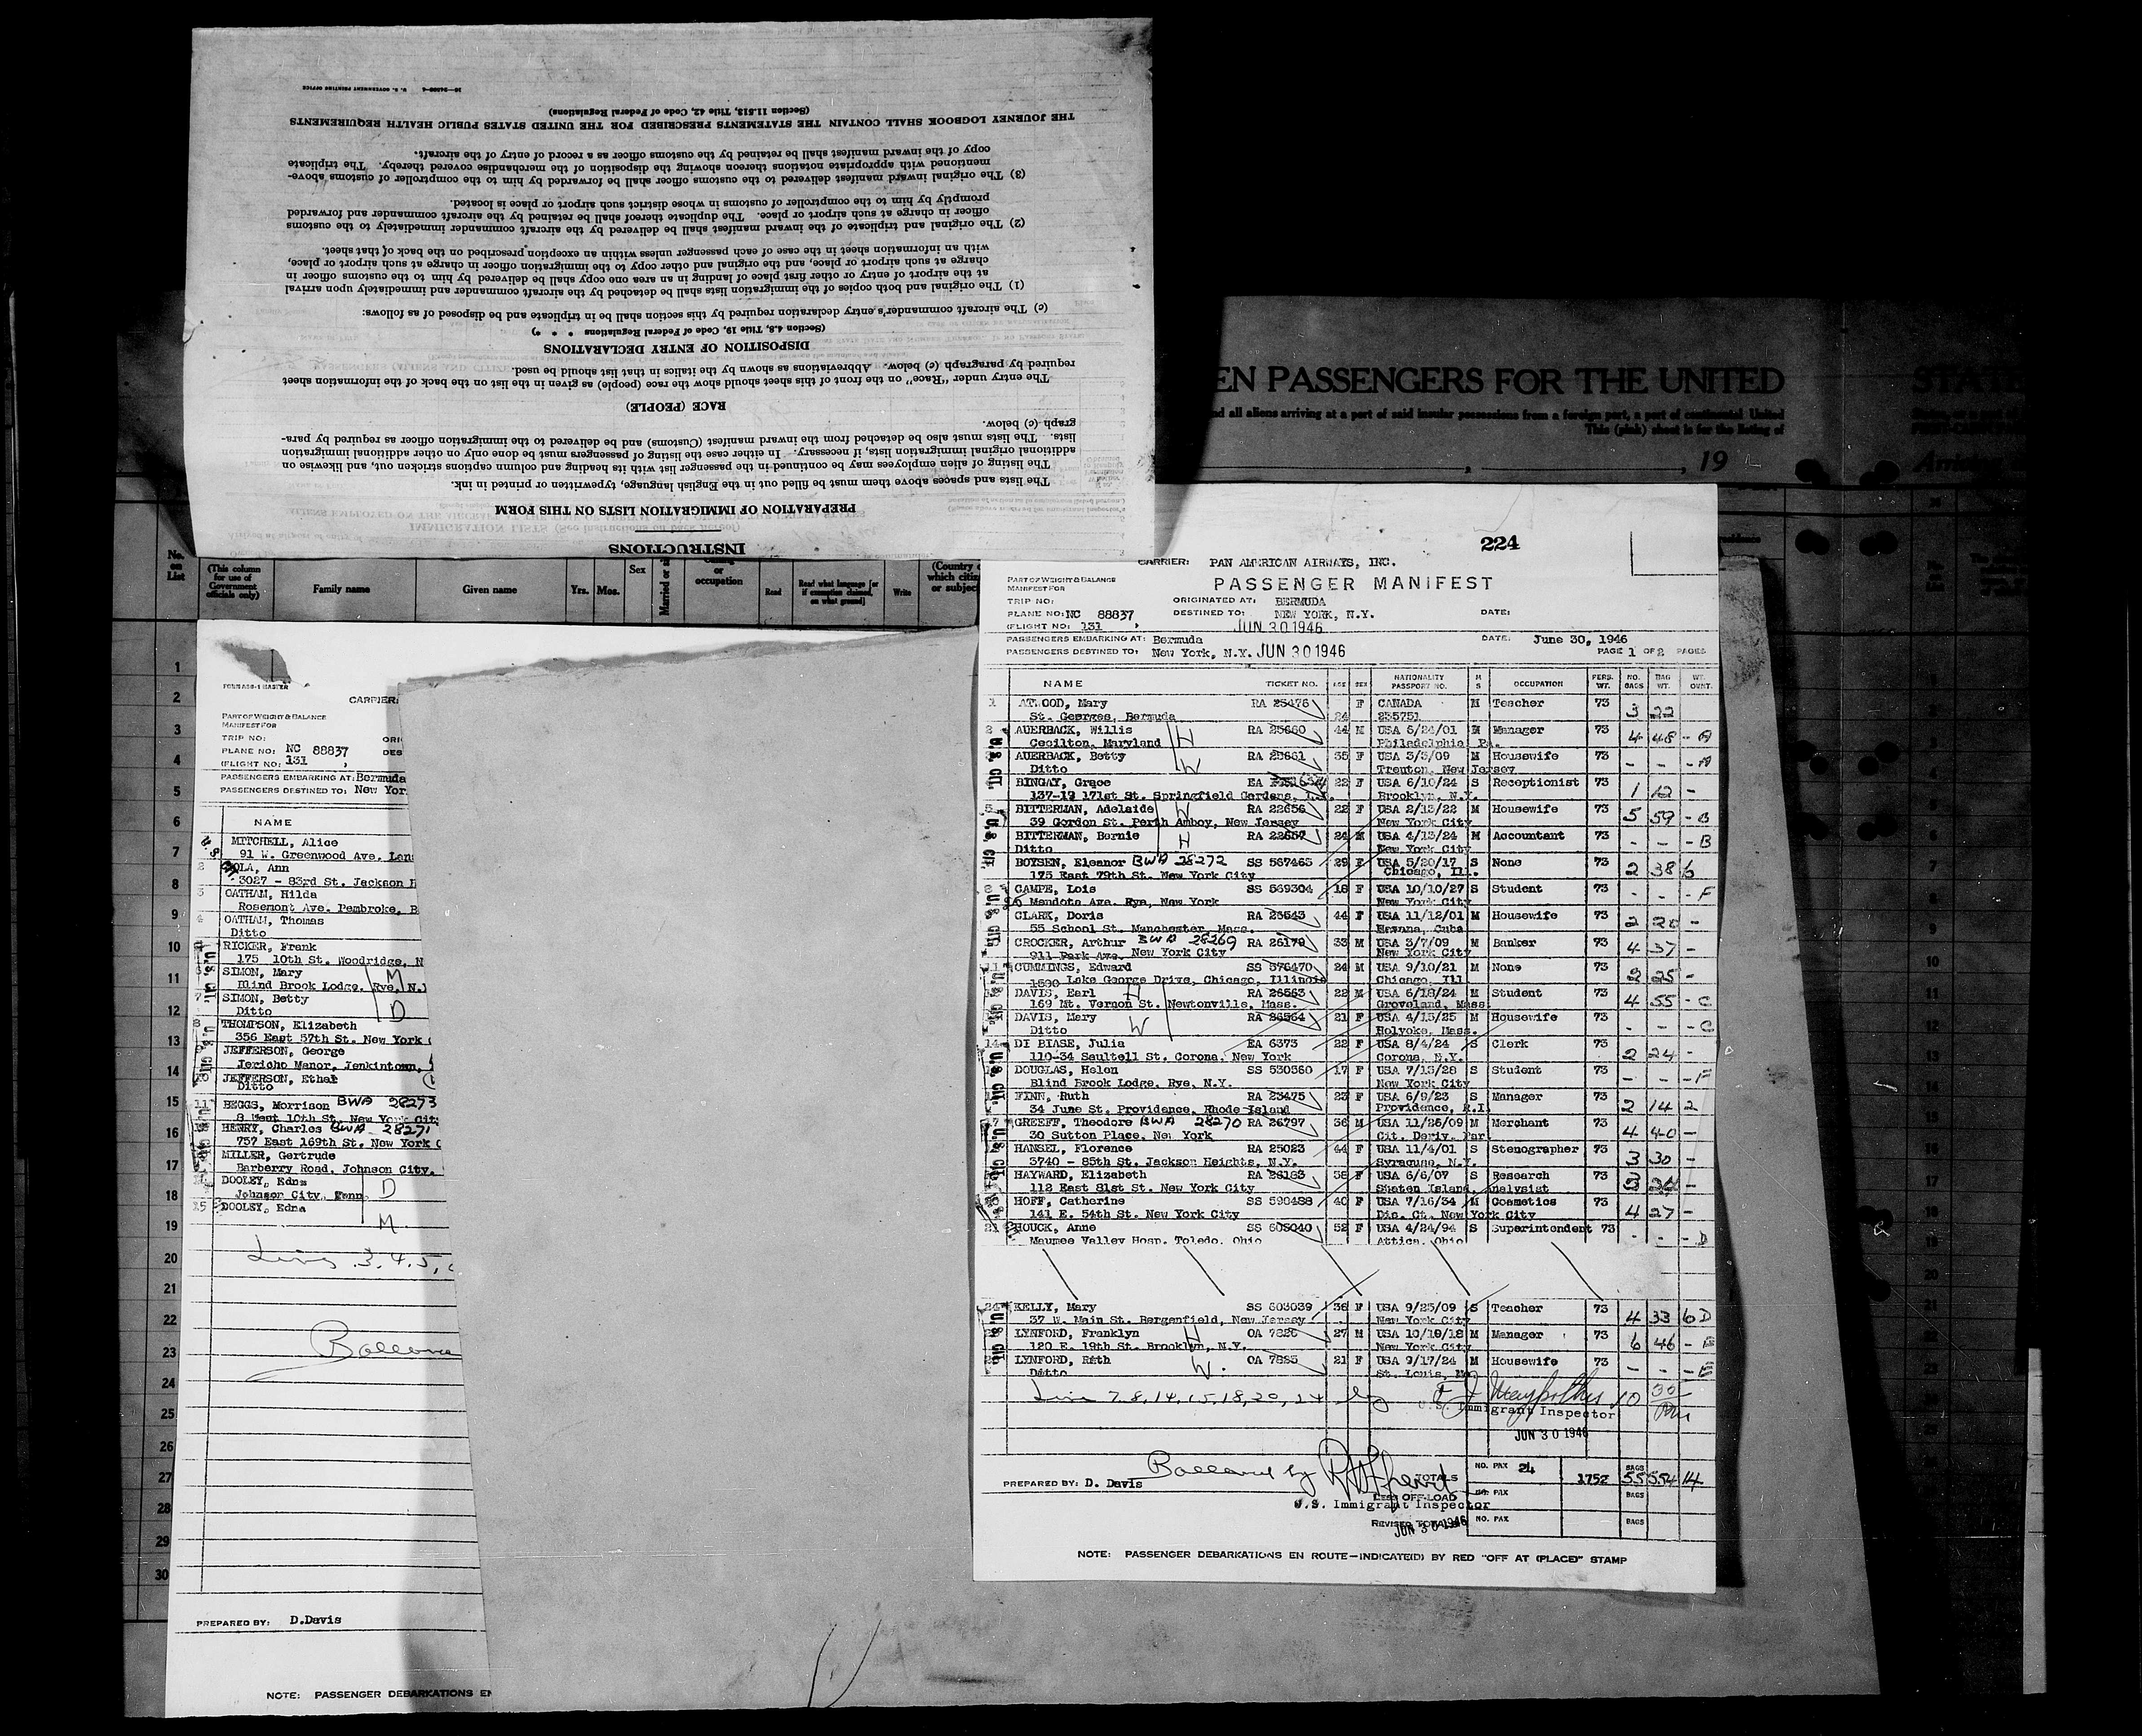 INSTRUCTIONS
PREPARATION OF IMMIGRATION LISTS ON THIS FORM
The lists and spaces above them must be filled out in the English language, typewritten or printed in ink.
The listing of alien employees may be continued in the passenger list with its heading and column captions stricken out, and likewise on
additional original immigration lists, if necessary. In either case the listing of passengers must be done only on other additional immigration
lists. The lists must also be detached from the inward manifest (Customs) and be delivered to the immigration officer as required by para-
graph (c) below.
RACE (PEOPLE)
The entry under "Race" on the front of this sheet should show the race (people) as given in the list on the back of the information sheet
required by paragraph (c) below. Abbreviations as shown by the italics in that list should be used.
DISPOSITION OF ENTRY DECLARATIONS
(Section 4.8, Title 19, Code of Federal Regulations * * *)
(c) The aircraft commander's entry declaration required by this section shall be in triplicate and be disposed of as follows:
(1) The original and both copies of the immigration lists shall be detached by the aircraft commander and immediately upon arrival
at the airport of entry or other first place of landing in an area one copy shall be delivered by him to the customs officer in
charge at such airport or place, and the original and other copy to the immigration officer in charge at such airport or place,
with an information sheet in the case of each passenger unless within an exception prescribed on the back of that sheet.
(2) The original and triplicate of the inward manifest shall be delivered by the aircraft commander immediately to the customs
officer in charge at such airport or place. The duplicate thereof shall be retained by the aircraft commander and forwarded
promptly by him to the comptroller of customs in whose district such airport or place is located.
(3) The original inward manifest delivered to the customs officer shall be forwarded by him to the comptroller of customs above-
mentioned with appropriate notations thereon showing the disposition of the merchandise covered thereby. The triplicate
copy of the inward manifest shall be retained by the customs officer as a record of entry of the aircraft.
THE JOURNEY LOGBOOK SHALL CONTAIN THE STATEMENTS PRESCRIBED FOR THE UNITED STATES PUBLIC HEALTH REQUIREMENTS
(Section 11.513, Title 42, Code of Federal Regulations)
U. S. GOVERNMENT PRINTING OFFICE
EN PASSENGERS FOR THE UNITED
nd all aliens arriving at a port of said insular possessions from a foreign port, a port of continental United
This (pink) sheet is for the listing of
, 19
No. on List (This column for use of Government officials only) Family name Given name Yrs. Mos. Sex Married or si or occupation Read Read what language [or if exemption claimed, on what ground] Write (Country which citiz or subjec
CARRIER:
PART OF WEIGHT & BALANCE
MANIFEST FOR
TRIP NO:
PLANE NO: NC 88837
(FLIGHT NO: 131 )
PASSENGERS EMBARKING AT: Bermuda
PASSENGERS DESTINED TO: New Yor
NAME
MITCHELL, Alice
91 W. Greenwood Ave. Lan
OLA, Ann
3027 - 83rd St. Jackson H
OATHAM, Hilda
Rosemont Ave. Pembroke, B
OATHAM, Thomas
Ditto
RICKER, Frank
175 10th St. Woodridge, N
SIMON, Mary M
Blind Brook Lodge, Rye, N.Y
SIMON, Betty
Ditto D
THOMPSON, Elizabeth
356 East 57th St. New York
JEFFERSON, George
Jericho Manor, Jenkintown,
JEFFERSON, Ethel
Ditto
BEGGS, Morrison BWA 28273
8 West 10th St. New York City
HENRY, Charles BWA 28271
757 East 169th St. New York C
MILLER, Gertrude
Barberry Road, Johnson City,
DOOLEY, Edna D
Johnson City, Tenn
DOOLEY, Edna
M
Lines 3.4.5,
PREPARED BY: D.Davis
NOTE: PASSENGER DEBARKATIONS EN
224
CARRIER: PAN AMERICAN AIRWAYS, INC.
PASSENGER MANIFEST
PART OF WEIGHT & BALANCE
MANIFEST FOR
TRIP NO: ORIGINATED AT: BERMUDA
PLANE NO: NC 88837 DESTINED TO: NEW YORK, N.Y. DATE:
(FLIGHT NO: 131 ) JUN 30 1946
PASSENGERS EMBARKING AT: Bermuda DATE: June 30, 1946
PASSENGERS DESTINED TO: New York, N.Y. JUN 30 1946 PAGE 1 OF 2 PAGES
NAME TICKET NO. AGE SEX NATIONALITY PASSPORT NO. M S OCCUPATION PERS. WT. NO. BAGS BAG WT. WT. OVNT.
1 ATWOOD, Mary RA 25476 F CANADA M Teacher 73
St. Georges, Bermuda 24 235751 3 22
AUERBACK, Willis H RA 25660 44 M USA 6/24/01 M Manager 73
Cecilton, Maryland Philadelphia Pa. 4 48 - A
AUERBACK, Betty RA 25661 35 F USA 3/3/09 M Housewife 73
Ditto W Trenton, New Jersey - - - A
BINGAY, Grace EA 22 F USA 6/10/24 S Receptionist 73
137-19 171st St. Springfield Gardens, L.I. Brooklyn, N.Y. 1 12 -
BITTERMAN, Adelaide W RA 22656 22 F USA 2/13/22 M Housewife 73
39 Gordon St. Perth Amboy, New Jersey New York City 5 59 - B
BITTERMAN, Bernie RA 22657 24 M USA 4/13/24 M Accountant 73
Ditto H New York City - - - B
BOYSEN, Eleanor BWA 28272 SS 567463 29 F USA 5/20/17 S None 73
175 East 79th St. New York City Chicago, Ill. 2 38 6
CAMPE, Lois SS 569304 18 F USA 10/10/27 S Student 73
6 Mendota Ave. Rye, New York New York City - - - F
CLARK, Doris RA 25543 44 F USA 11/12/01 M Housewife 73
55 School St. Manchester, Mass. Havana, Cuba 2 20 -
CROCKER, Arthur BWA 28269 RA 26179 33 M USA 3/7/09 M Banker 73
911 Park Ave. New York City New York City 4 37 -
11 CUMMINGS, Edward SS 576470 24 M USA 9/10/21 M None 73
1500 Lake George Drive, Chicago, Illinois Chicago, Ill 2 25 -
DAVIS, Earl H RA 26563 22 M USA 6/18/24 M Student 73
169 Mt. Vernon St. Newtonville, Mass. Groveland, Mass. 4 55 - C
DAVIS, Mary RA 26564 21 F USA 4/15/25 M Housewife 73
Ditto W Holyoke, Mass. - - - C
14 DI BIASE, Julia EA 6373 22 F USA 8/4/24 S Clerk 73
110-34 Saultell St. Corona, New York Corona, N.Y. 2 24 -
DOUGLAS, Helen SS 530560 17 F USA 7/13/28 S Student 73
Blind Brook Lodge, Rye, N.Y. New York City - - - F
FINN, Ruth RA 23475 23 F USA 6/9/23 S Manager 73
34 June St. Providence, Rhode Island Providence, R.I 2 14 2
GREEFF, Theodore BWA 28270 RA 26797 36 M USA 11/26/09 M Merchant 73
30 Sutton Place, New York Cit. Deriv. Par 4 40 -
HANSEL, Florence RA 25023 44 F USA 11/4/01 S Stenographer 73
3740 - 85th St. Jackson Heights, N.Y. Syracuse, N.Y. 3 30 -
HAYWARD, Elizabeth RA 26183 38 F USA 6/6/07 S Research 73
112 East 81st St. New York City Staten Island Analysist
HOFF, Catherine SS 590488 40 F USA 7/16/34 M Cosmetics 73
141 E. 54th St. New York City Dis. Ct. New York City 4 27 -
21 HOUCK, Anne SS 603040 52 F USA 4/24/94 S Superintendent 73
Maumee Valley Hosp. Toledo, Ohio Attica, Ohio - - - D
24 KELLY, Mary SS 603039 36 F USA 9/25/09 S Teacher 73
37 W. Main St. Bergenfield, New Jersey New York City 4 33 6 D
LYNFORD, Franklyn H OA 7826 27 M USA 10/10/18 M Manager 73
120 E. 19th St. Brooklyn, N.Y. New York City 6 46 - E
LYNFORD, Ruth OA 7885 21 F USA 9/17/24 M Housewife 73
Ditto W. St. Louis, Mo - - - E
Line 7.8,14,15,18,20,24 by
U.S. Immigrant Inspector
JUN 30 1946
PREPARED BY: D. Davis TOTALS NO. PAX 24 1752 BAGS 55 554 14
LESS OFF-LOAD NO. PAX BAGS
U.S. Immigrant Inspector
REVISED TOTALS NO. PAX BAGS
JUN 30 1946
NOTE: PASSENGER DEBARKATIONS EN ROUTE—INDICATE(D) BY RED "OFF AT (PLACE)" STAMP